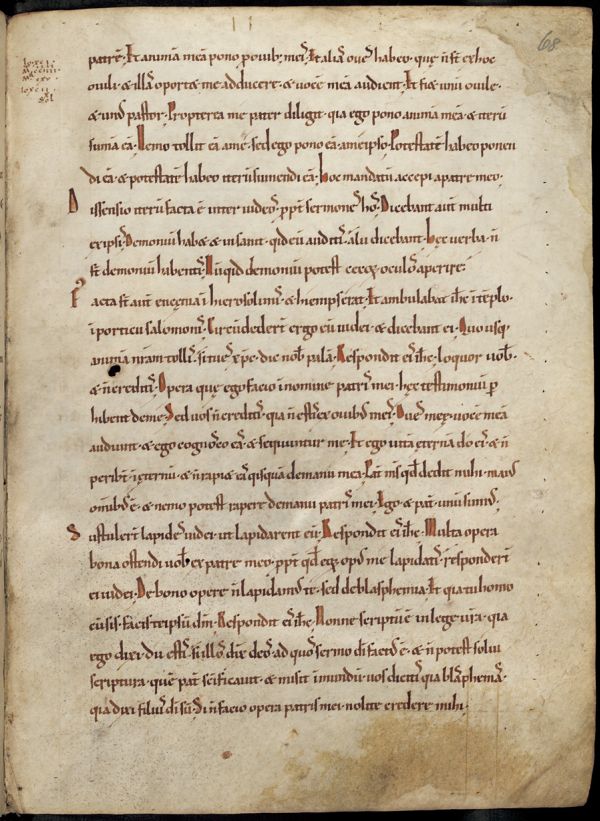 68
patrē. Et animā meā pono p ouib; meis. Et alias oues habeo. quę n̄ st ex hoc
ouili. & illas oport& me adducere. & uocē meā audient. Et fi& unū ouile.
& unus pastor. Propterea me pater diligit. quia ego pono animā meā. & iterū
sumā eā. Nemo tollit eā a me. sed ego pono eā. a me ipso. Potestatē habeo ponen
di eā. & potestatē habeo iterū sumendi eā. hoc mandatū accepi a patre meo.
Dissensio iterū facta ē inter iudeos. ppt sermones hos. Dicebant aut̄ multi
ex ipsis. Demoniū hab& & insanit. quid eū auditis. alii dicebant. hęc uerba n̄
st demoniū habentis. Nūquid demoniū potest cecoꝝ oculos aperire.
Facta st aut̄ encęnia ī hierosolimis. & hiemps erat. Et ambulabat ihc̄ ī tēplo.
ī porticu salomonis. Circūdederūt ergo eū iudei. & dicebant ei. Quo usq;
animā nrām tollis. si tu es xpc̄. dic nob palā. Respondit eis ihc̄. loquor uob.
& n̄ creditis. Opera quę ego facio in nomine patris mei. hęc testimoniū p
hibent de me. Sed uos n̄ creditis. quia n̄ estis ex ouib; meis. Oues męę. uocē meā
audiunt. & ego cognosco eas. & sequuntur me. Et ego uitā eternā do eis. & n̄
peribt̄ ī ęternū. & n̄ rapi& eas quisquā de manu mea. Pat̄ ms̄ qd dedit mihi. maius
omnib; ē. & nemo potest rapere de manu patris mei. Ego & pat̄. unū sumus.
Sustulerūt lapides iudei. ut lapidarent eū. Respondit eis ihc̄. Multa opera
bona ostendi uob ex patre meo. ppt qd eoꝝ opus me lapidatis. responderūt
ei iudei. De bono opere n̄ lapidamus te. sed de blasphemia. Et quia tu homo
cū sis. facis te ipsū dm̄. Respondit eis ihc̄. Nonne scriptū ē in lege urā. quia
ego dixi. dii estis. si illos dix̄ deos. ad quos sermo dī factus ē. & n̄ potest solui
scriptura. quē pat̄ scīficauit. & misit ī mundū. uos dicitis. quia blasphemas.
quia dixi filius dī sū. Si n̄ facio opera patris mei. nolite credere mihi.